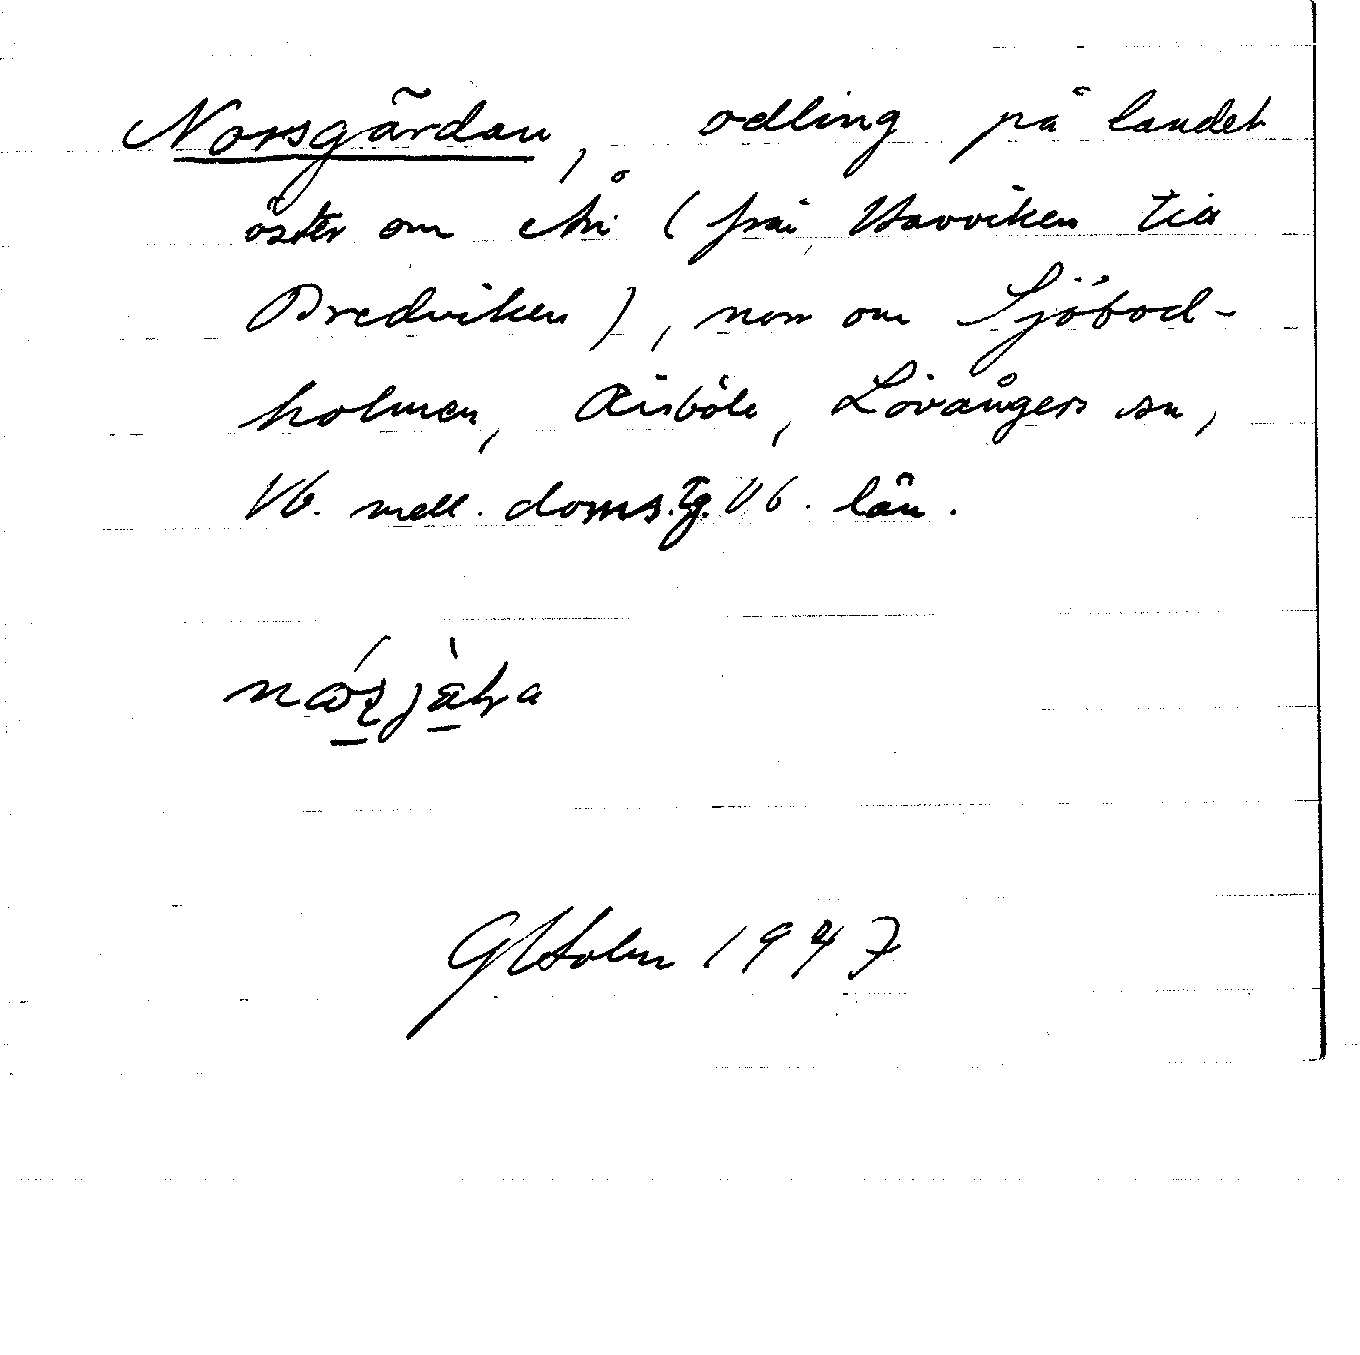 Norsgärdan, odling på landet
öster om Ån (från Havviken till
Bredviken), norr om Sjöbod-
holmen, Bisböle, Lövångers sn,
Vb. mell. doms.tg. Vb. län.
G Holm 1947